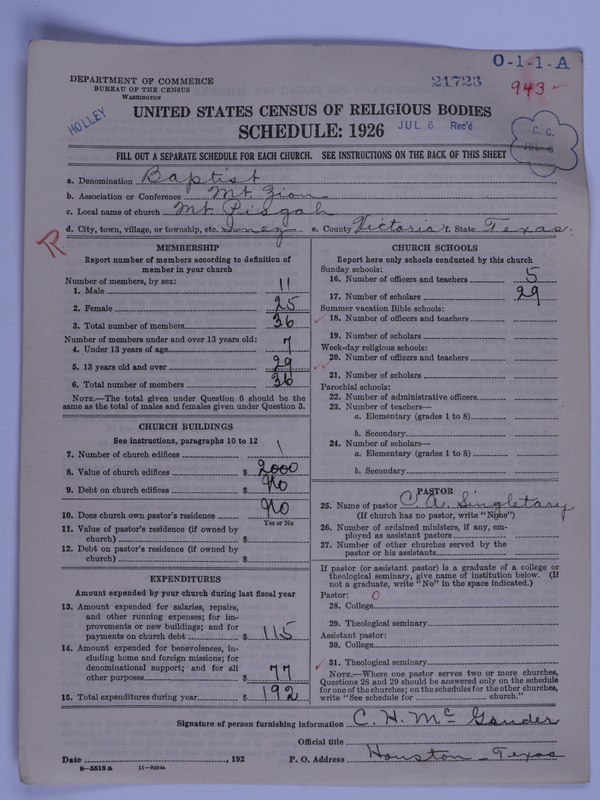 O-1-1-A
DEPARTMENT OF COMMERCE
BUREAU OF THE CENSUS
WASHINGTON
21723
943
HOLLEY
UNITED STATES CENSUS OF RELIGIOUS BODIES
SCHEDULE: 1926
JUL 6 Rec'd
C. C.
JUL 8
FILL OUT A SEPARATE SCHEDULE FOR EACH CHURCH. SEE INSTRUCTIONS ON THE BACK OF THIS SHEET
a. Denomination Baptist
b. Association or Conference Mt. Zion
c. Local name of church Mt Pisgah
d. City, town, village, or township, etc. Inez e. County Victoria f. State Texas.
MEMBERSHIP
Report number of members according to definition of
member in your church
Number of members, by sex:
1. Male 11
2. Female 25
3. Total number of members 36
Number of members under and over 13 years old:
4. Under 13 years of age 7
5. 13 years old and over 29
6. Total number of members 36
NOTE.—The total given under Question 6 should be the
same as the total of males and females given under Question 3.
CHURCH BUILDINGS
See instructions, paragraphs 10 to 12
7. Number of church edifices 1
8. Value of church edifices $ 2000
9. Debt on church edifices $ No
10. Does church own pastor's residence No
Yes or No
11. Value of pastor's residence (if owned by
church) $
12. Debt on pastor's residence (if owned by
church) $
EXPENDITURES
Amount expended by your church during last fiscal year
13. Amount expended for salaries, repairs,
and other running expenses; for im-
provements or new buildings; and for
payments on church debt $ 115
14. Amount expended for benevolences, in-
cluding home and foreign missions; for
denominational support; and for all
other purposes $ 77
15. Total expenditures during year $ 192
CHURCH SCHOOLS
Report here only schools conducted by this church
Sunday schools:
16. Number of officers and teachers 5
17. Number of scholars 29
Summer vacation Bible schools:
18. Number of officers and teachers
19. Number of scholars
Week-day religious schools:
20. Number of officers and teachers
21. Number of scholars
Parochial schools:
22. Number of administrative officers
23. Number of teachers—
a. Elementary (grades 1 to 8)
b. Secondary
24. Number of scholars—
a. Elementary (grades 1 to 8)
b. Secondary
PASTOR
25. Name of pastor C. A. Singletary
(If church has no pastor, write "None")
26. Number of ordained ministers, if any, em-
ployed as assistant pastors
27. Number of other churches served by the
pastor or his assistants
If pastor (or assistant pastor) is a graduate of a college or
theological seminary, give name of institution below. (If
not a graduate, write "No" in the space indicated.)
Pastor: 0
28. College
29. Theological seminary
Assistant pastor:
30. College
31. Theological seminary
NOTE.—Where one pastor serves two or more churches,
Questions 28 and 29 should be answered only on the schedule
for one of the churches; on the schedules for the other churches,
write "See schedule for church."
Signature of person furnishing information C. H. Mc Gander
Official title
Date , 192 P. O. Address Houston - Texas
8-5515a 11-9284a